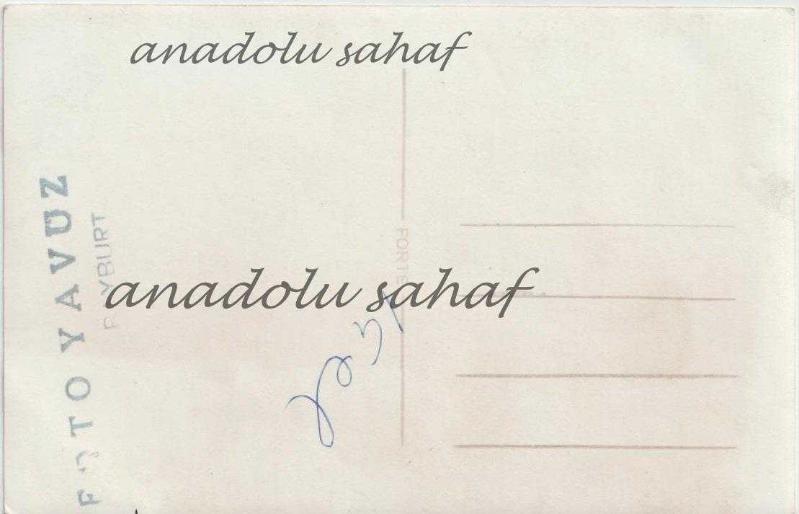 anadolu sahaf
FOTO YAVUZ
BAYBURT
FORTE
anadolu sahaf